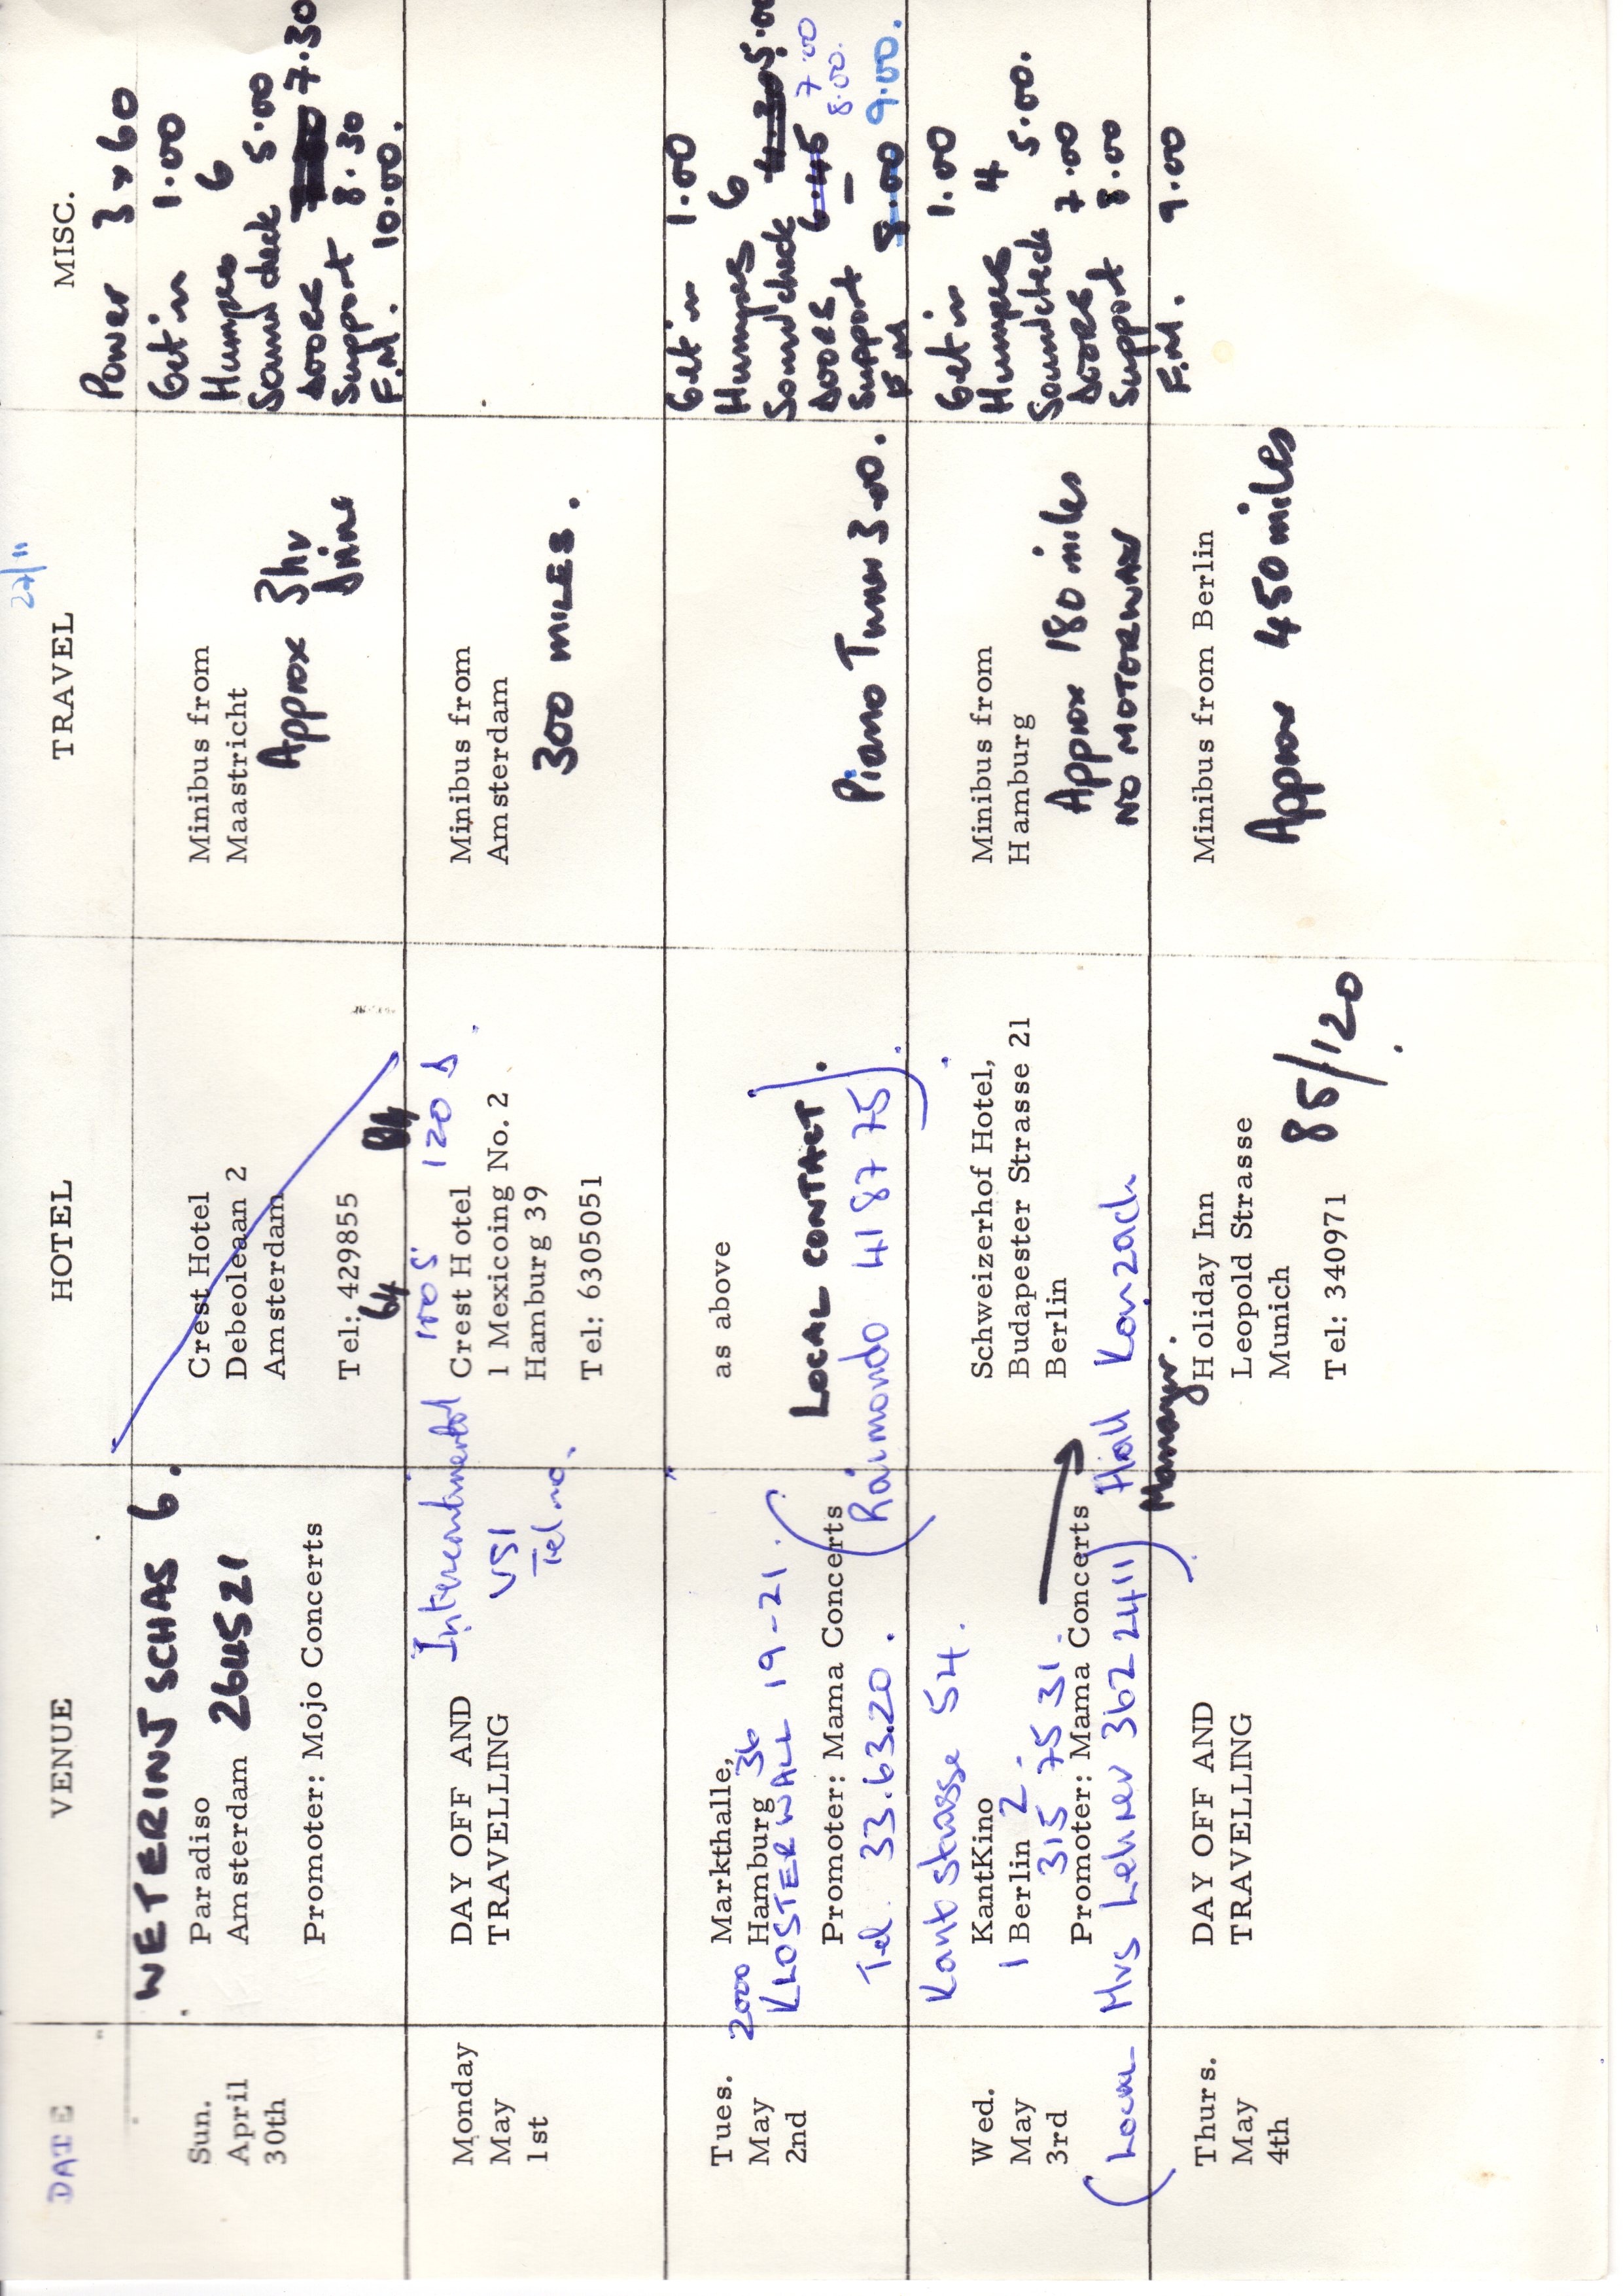 27/11
DATE VENUE HOTEL TRAVEL MISC.
Sun.
April
30th
WETERINJSCHAS 6.
Paradiso
Amsterdam 264521
Promoter: Mojo Concerts
Crest Hotel
Debeolelaan 2
Amsterdam
Tel: 429855
64
Minibus from
Maastricht
Approx 3hr
drive
Power 3 x 60
Get in 1.00
Humpers 6
Sound check 5.00
DOORS 7.30
Support 8.30
F.M. 10.00.
Monday
May
1st
DAY OFF AND
TRAVELLING
Intercontinental
VSI
Tel no.
100 S 120 D
Crest Hotel
1 Mexicoing No. 2
Hamburg 39
Tel: 6305051
Minibus from
Amsterdam
300 MILES.
Tues.
May
2nd
Markthalle,
2000 Hamburg 36
KLOSTERWALL 19-21.
Promoter: Mama Concerts
Tel. 33.63.20.
as above
LOCAL CONTACT.
(Raimondo 41 87 75)
Piano Tuner 3.00.
Get in 1.00
Humpers 6
Soundcheck 4.30 5.00
DOORS 6.45 7.00
Support — 8.00.
F.M 8.00 9.00.
Wed.
May
3rd
Kantstrasse 54.
KantKino
1 Berlin 2.
315 75 31.
Promoter: Mama Concerts
(Local Mrs Lehrer 362 2411)
Schweizerhof Hotel,
Budapester Strasse 21
Berlin
Hall Konzack
Manager.
Minibus from
Hamburg
Approx 180 miles
NO MOTORWAY
Get in 1.00
Humpers 4
Soundcheck 5.00.
DOORS 7.00
Support 8.00
F.M. 9.00
Thurs.
May
4th
DAY OFF AND
TRAVELLING
Holiday Inn
Leopold Strasse
Munich
85/120
Tel: 340971
Minibus from Berlin
Approx 450 miles